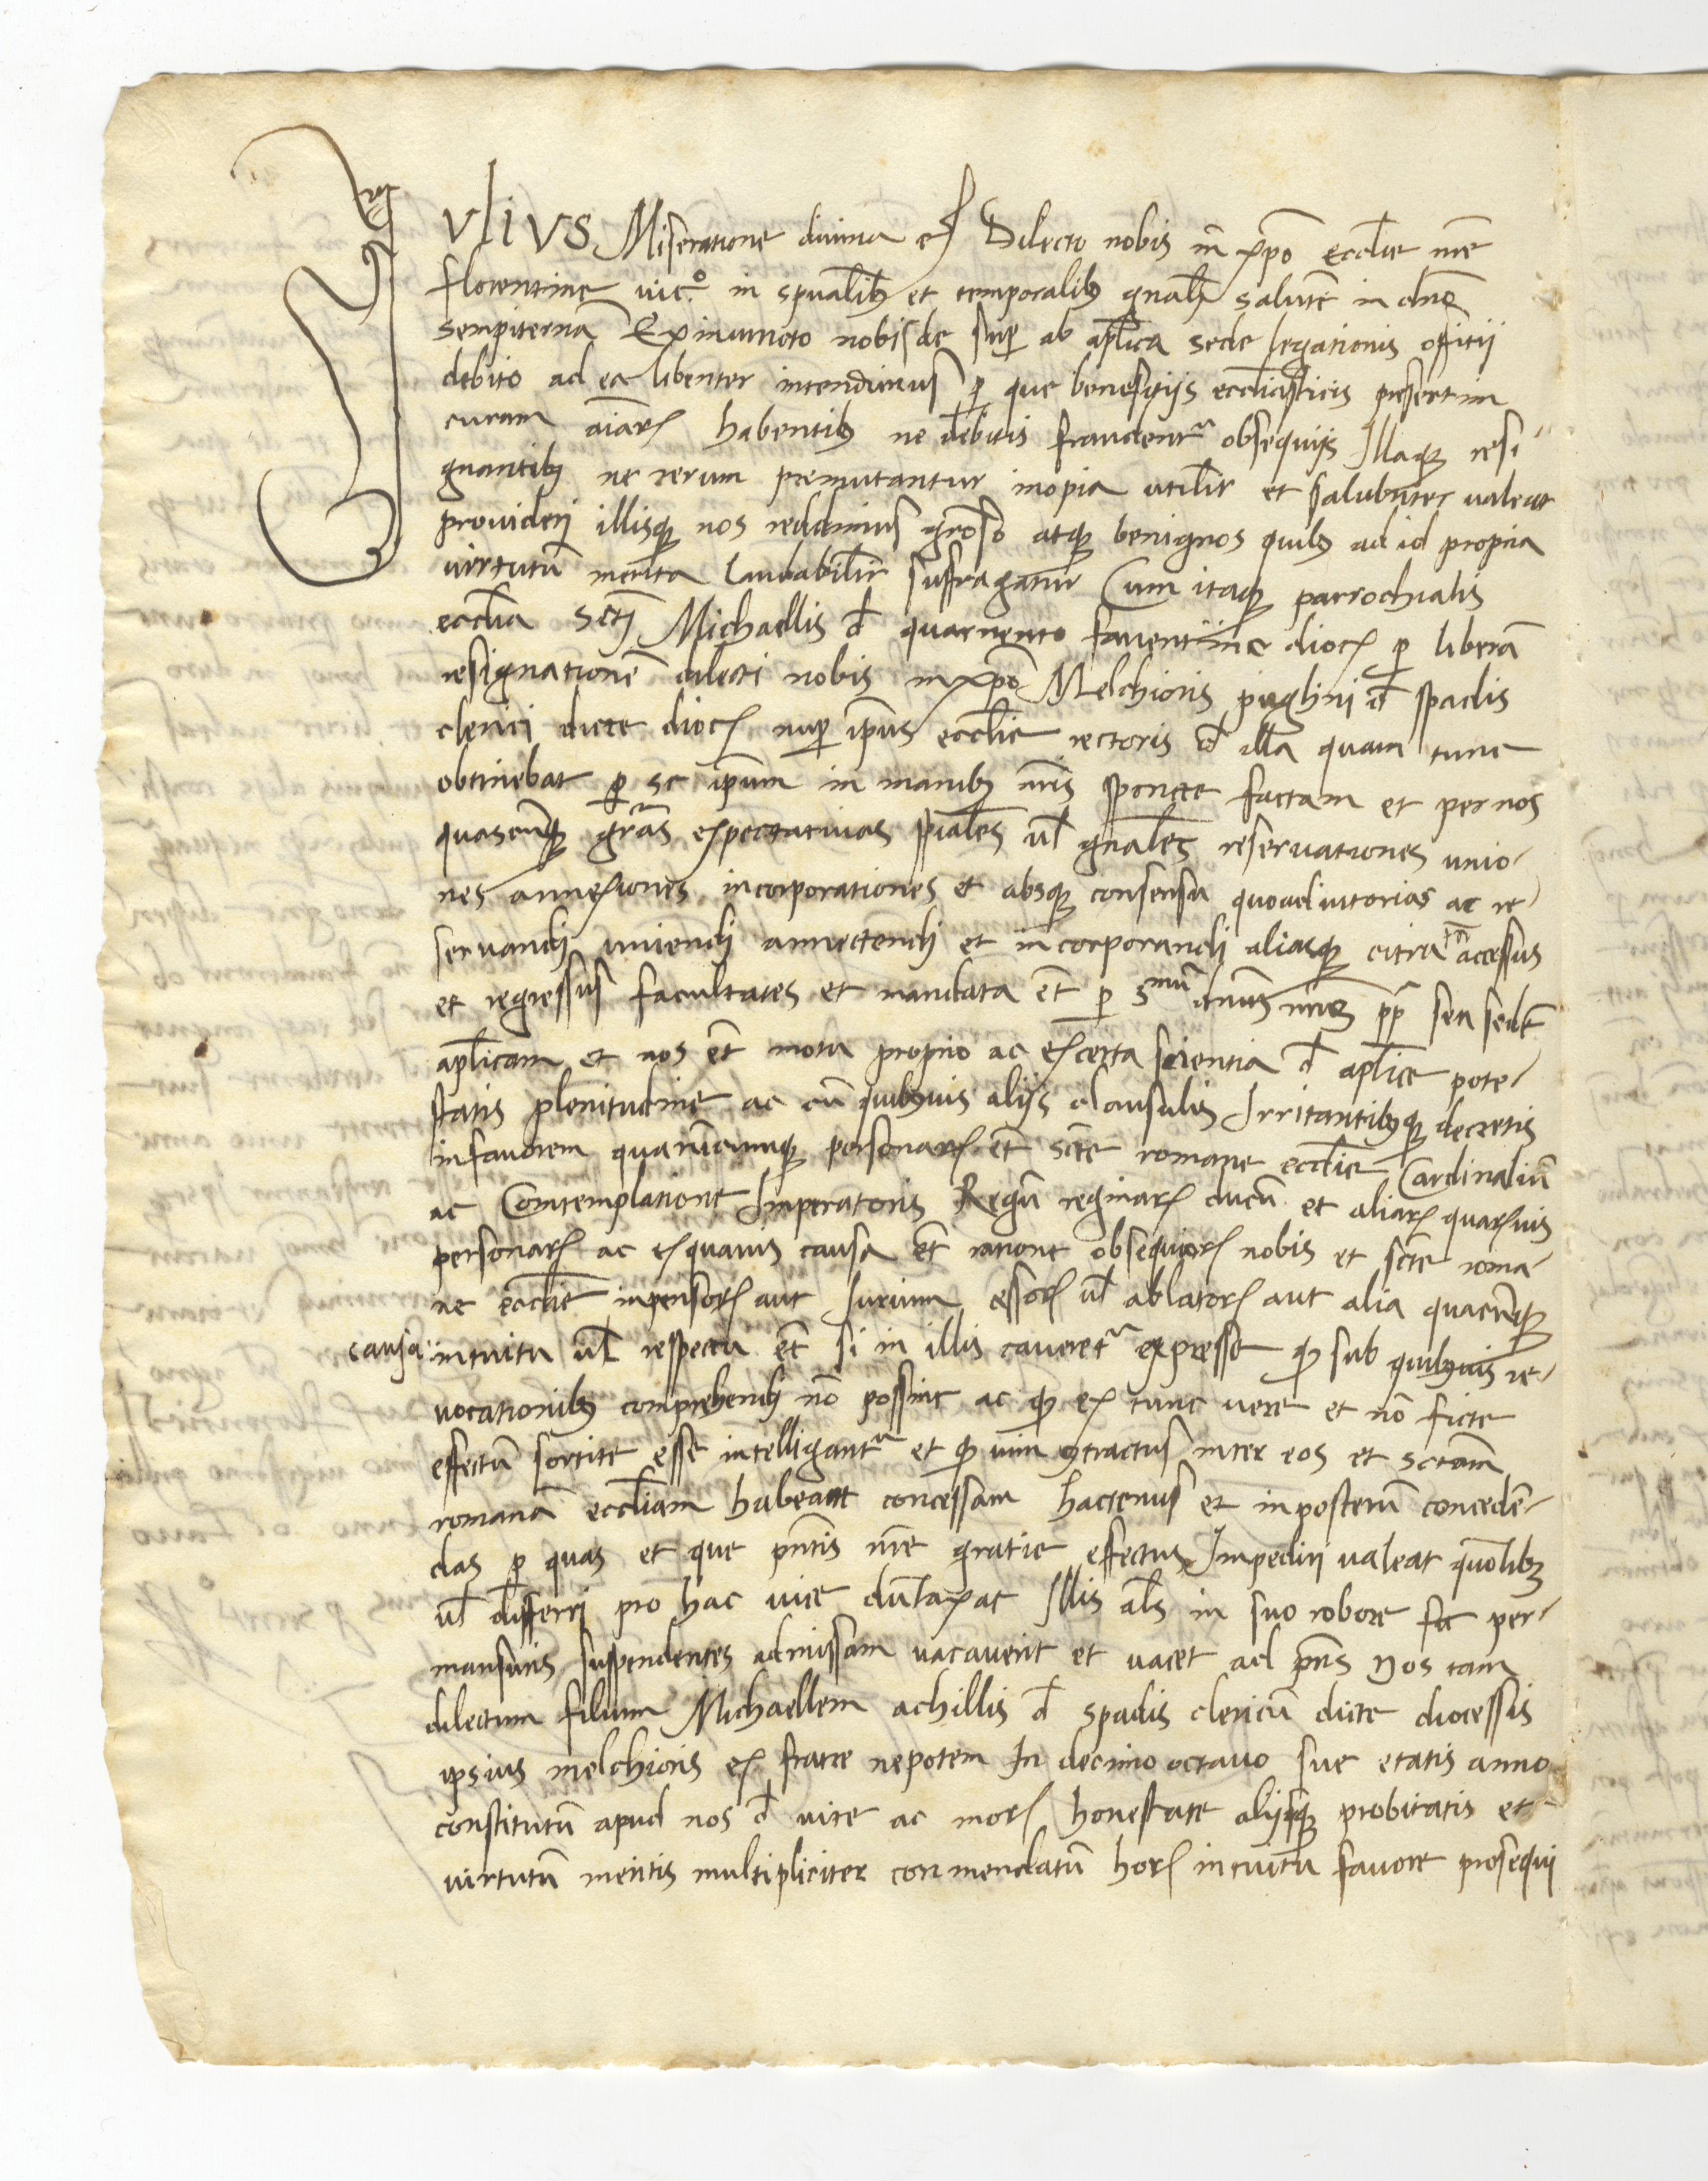 IVlIVS Miseratione diuina et͞c Dilecto nobis in xp̄o eccl̄ie nr̄e
florentine vic.º in sp̄ualib; et temporalib; gn̄ali salutē in dn̄o
sempiternā Ex iniuncto nobis desup̱ ab ap̄lica sede legationis ofitii
debito ad ea libenter intendimus p̱ que benefitijs eccl̄iasticis presertim
curam aīaꝝ habentib; ne debitis fraudentʳ obsequijs Illaqꝫ resi-
gnantib; ne rerum premutantur inopia utilit̄ et salubriter ualeat
provideri illisqꝫ nos reddimus gr̄oso atqꝫ benignos quib; ad id propria
virtutū merita laudabilit̄ sufragantur Cum itaqꝫ parrochialis
eccl̄ia Sctj Michaellis d̄ quarnento fauentiine dioc̄ p̱ liberā
resignationē dilecti nobis in xp̄o Melchioris piglini d̄ spadis
clerici dicte dioc̄ nup̱ ip̄ius eccl̄ie rectoris d̄ illa quam tunc
obtinebat p̱ se ip̄um in manib; nr̄is sponte factam et per nos
quascūqꝫ grās expectatiuas sp̄iales ul̄ gn̄ales reseruationes unio-
nes annexiones incorporationes et absqꝫ consensu quoadiutorias ac re-
seruandj uniendj annectendj et incorporandi aliasqꝫ citra tn̄ accessus
et regressus facultates et mandata et̄ p̱ smū dn̄um nr̄m pp̄ seu sedē
apl̄icam et nos et̄ motu proprio ac ex certa scientia d̄ apl̄ice pote-
statis plenitudine ac cū quib;uis aliis clausulis Irritantib;qꝫ decretis
in fauorem quarūcumqꝫ personaꝝ et̄ scte romane eccl̄ie Cardinaliū
ac Contemplatione Imperatoris Regū reginaꝝ ducū et aliaꝝ quaꝝuis
personaꝝ ac ex quauis causa et̄ ratione obsequioꝝ nobis et scte roma-
ne eccl̄ie inpensoꝝ aut Iurium cessoꝝ ul̄ ablatoꝝ aut alia quacūqꝫ
causa: intuitu ul̄ respectu et̄ si in illis caueretʳ expresse qꝫ sub quib;uis re-
uocationib; comprehendj nō possint ac qꝫ ex tunc uere et nō ficte
effectū sortite esse intelligantʳ et qꝫ uim ꝯtractus inter eos et sctam
romanā eccl̄iam habeant concessam hactenus et inposterū concedē-
das p̱ quas et que pn̄tis nr̄e gratie effectus Impediri ualeat quōlib;
ul̄ differri pro hac uice duntaxat Illis al̄s in suo robore per-
mansuris suspendentes admissam uacauerit et uacet ad pn̄s Nos tam
dilectum filium Michaellem achillis d̄ spadis clericū dicte diocessis
ipsius melchioris ex fratre nepotem In decimo octauo sue etatis anno
constitutū apud nos d̄ uite ac moꝝ honestate aliisqꝫ probitatis et
virtutū meritis multipliciter conmendatū hoꝝ intuitu fauore prosequi